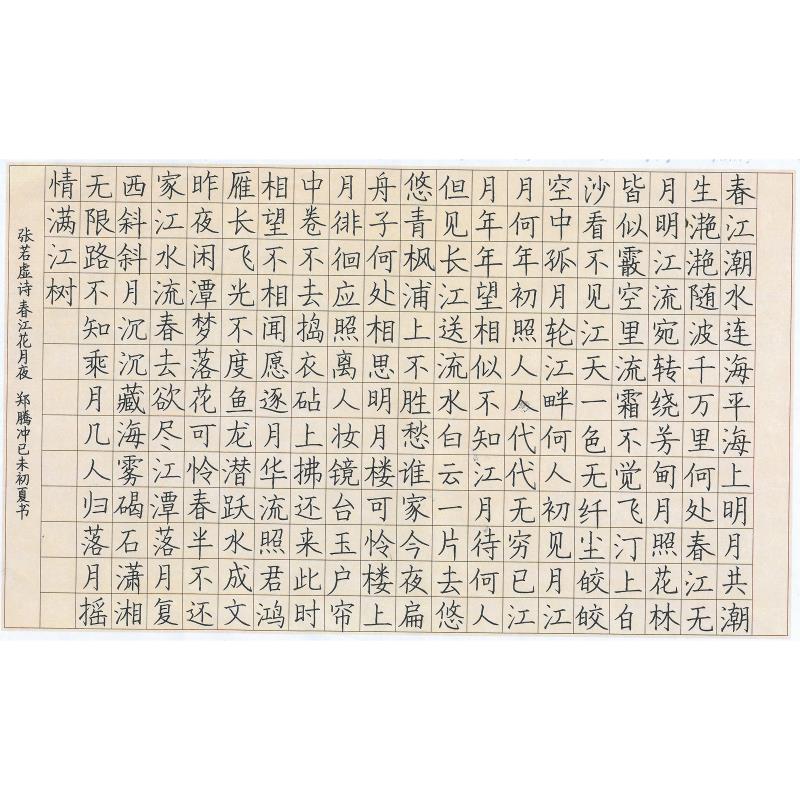 春江潮水连海平海上明月共潮
生滟滟随波千万里何处春江无
月明江流宛转绕芳甸月照花林
皆似霰空里流霜不觉飞汀上白
沙看不见江天一色无纤尘皎皎
空中孤月轮江畔何人初见月江
月何年初照人人代代无穷已江
月年年望相似不知江月待何人
但见长江送流水白云一片去悠
悠青枫浦上不胜愁谁家今夜扁
舟子何处相思明月楼可怜楼上
月徘徊应照离人妆镜台玉户帘
中卷不去捣衣砧上拂还来此时
相望不相闻愿逐月华流照君鸿
雁长飞光不度鱼龙潜跃水成文
昨夜闲潭梦落花可怜春半不还
家江水流春去欲尽江潭落月复
西斜斜月沉沉藏海雾碣石潇湘
无限路不知乘月几人归落月摇
情满江树
张若虚诗春江花月夜 郑腾冲己未初夏书